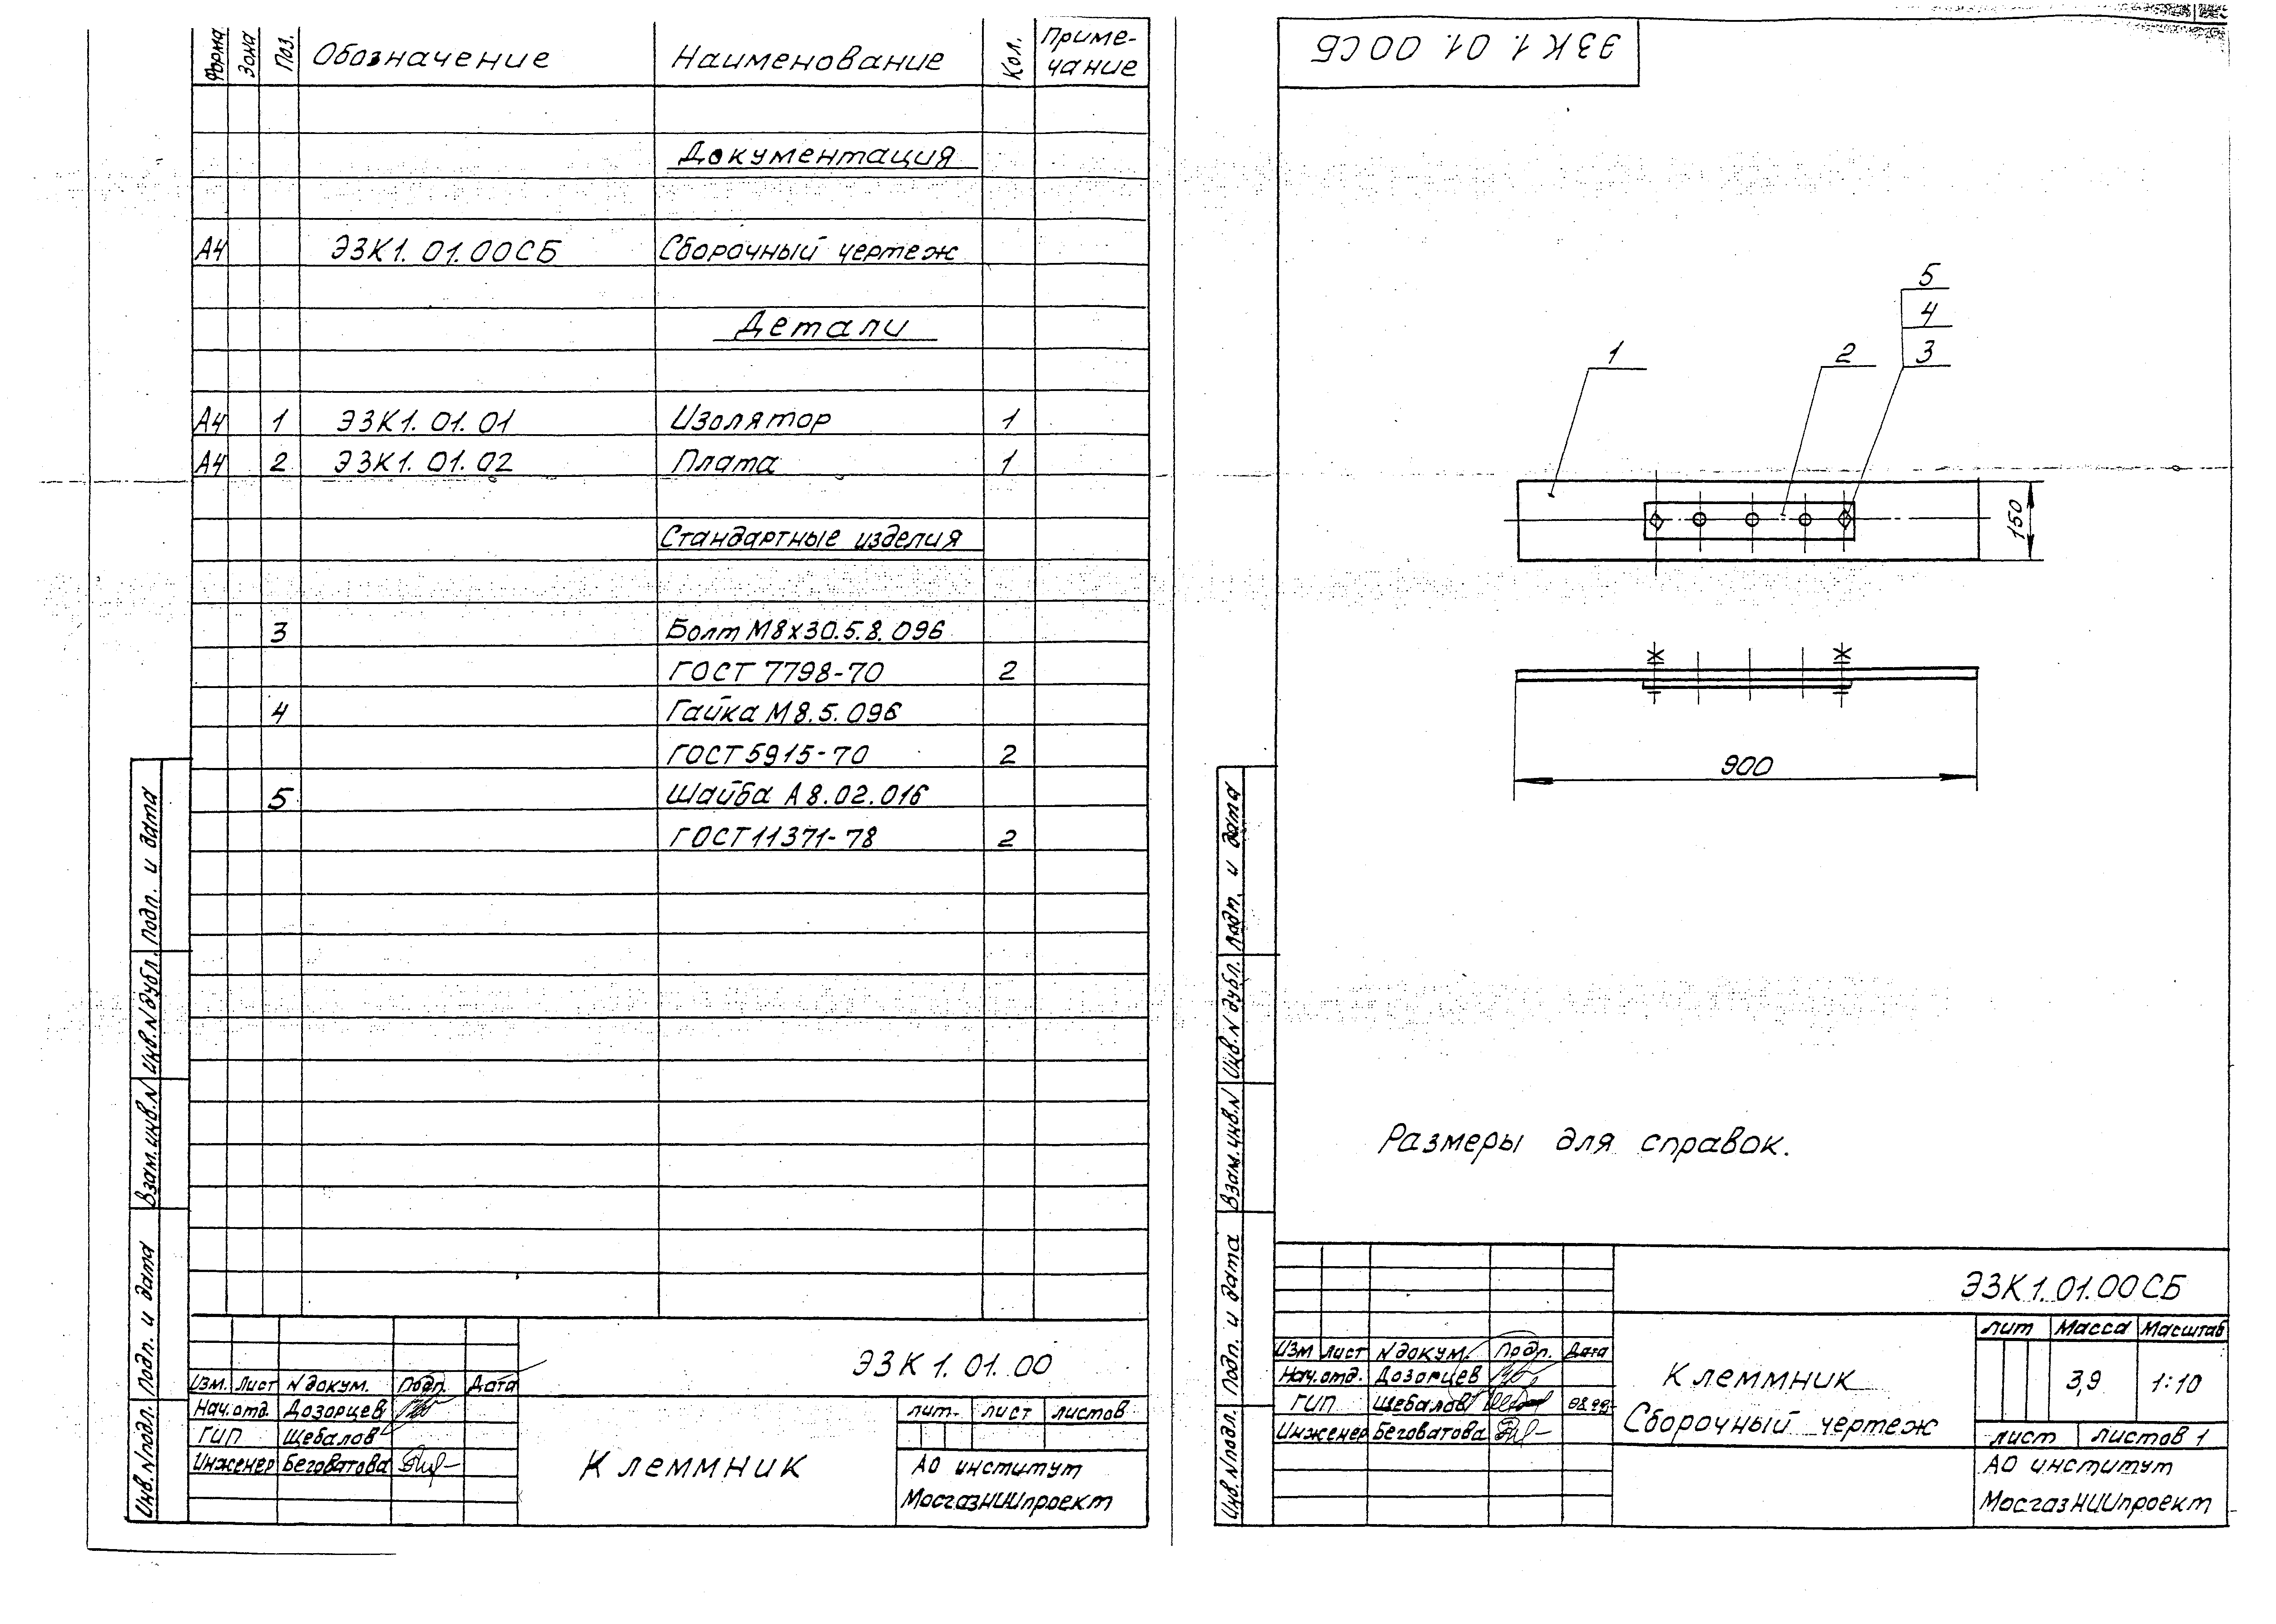 Форма Зона Поз. Обозначение Наименование Кол. Приме-
чание
Документация
А4 ЭЗК1. 01. 00СБ Сборочный чертеж
Детали
А4 1 ЭЗК1. 01. 01 Изолятор 1
А4 2 ЭЗК1. 01. 02 Плата 1
Стандартные изделия
3 Болт М8х30.5.8.096
ГОСТ 7798-70 2
4 Гайка М8.5.096
ГОСТ 5915-70 2
5 Шайба А8.02.016
ГОСТ 11371-78 2
Подп. и дата
Инв.N дубл.
Взам.инв.N
Подп. и дата
Инв.N подл.
ЭЗК 1. 01. 00
Изм. Лист N докум. Подп. Дата
Нач.отд. Дозорцев
ГИП Щебалов
Инженер Беговатова
Клеммник
лит. лист листов
АО институт
МосгазНИИпроект
ЭЗК 1. 01. 00СБ
5
4
3
1
2
150
900
Размеры для справок.
Подп. и дата
Инв.N дубл.
Взам.инв.N
Подп. и дата
Инв.N подл.
ЭЗК 1. 01. 00СБ
Изм лист N докум. Подп. Дата
Нач.отд. Дозорцев
ГИП Щебалов
Инженер Беговатова
Клеммник
Сборочный чертеж
лит Масса Масштаб
3,9 1:10
лист листов 1
АО институт
МосгазНИИпроект